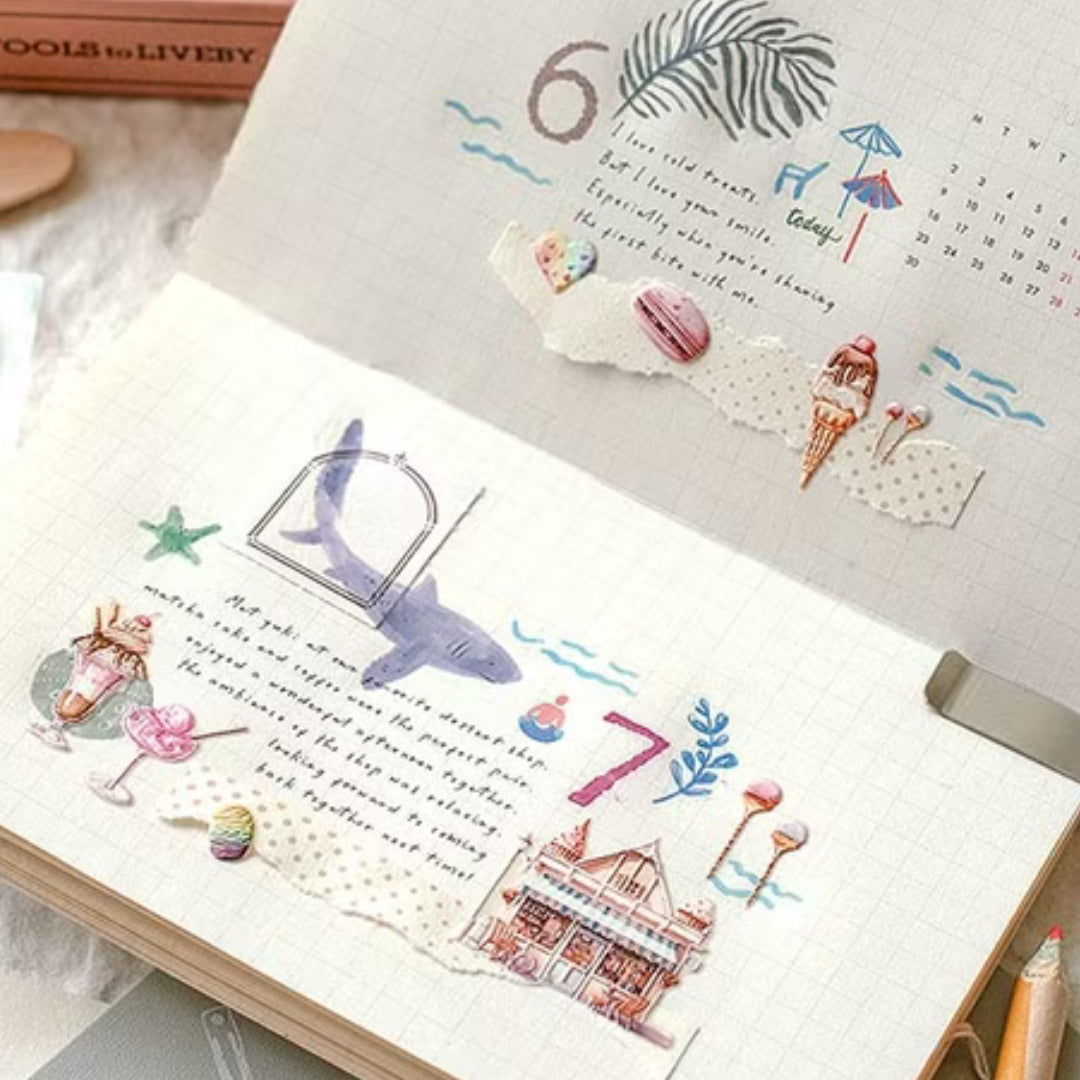 TOOLS to LIVEBY
6
I love cold treats.
But I love your smile.
Especially when you're sharing
the first bite with me.
today
M T W T
2 3 4 5 6
9 10 11 12 13 14
16 17 18 19 20 21
23 24 25 26 27 28
30
Met yuki at our favorite dessert shop.
matcha cake and coffee were the perfect pair.
enjoyed a wonderful afternoon together.
the ambiance of the shop was relaxing.
looking forward to coming
back together next time!
7